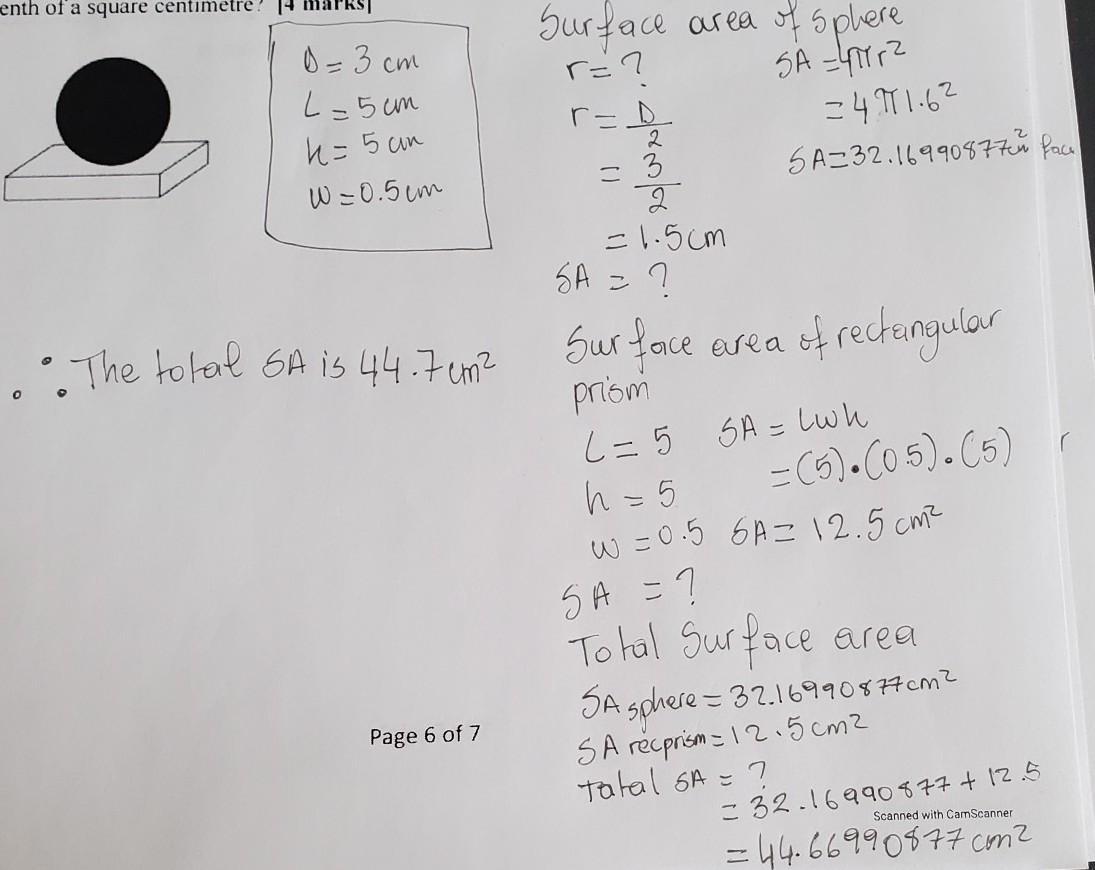 enth of a square centimetre? [4 marks]
D = 3 cm
L = 5 cm
h = 5 cm
w = 0.5 cm
∴ The total SA is 44.7 cm²
Surface area of sphere
r = ?
r = D/2
= 3/2
= 1.5 cm
SA = ?
SA = 4πr²
= 4π1.6²
SA = 32.16990877cm²
Surface area of rectangular
prism
L = 5
h = 5
w = 0.5
SA = ?
SA = Lwh
= (5)•(0.5)•(5)
SA = 12.5 cm²
Total Surface area
SA sphere = 32.16990877cm²
SA recprism = 12.5cm²
Tatal SA = ?
= 32.16990877 + 12.5
= 44.66990877 cm²
Page 6 of 7
Scanned with CamScanner